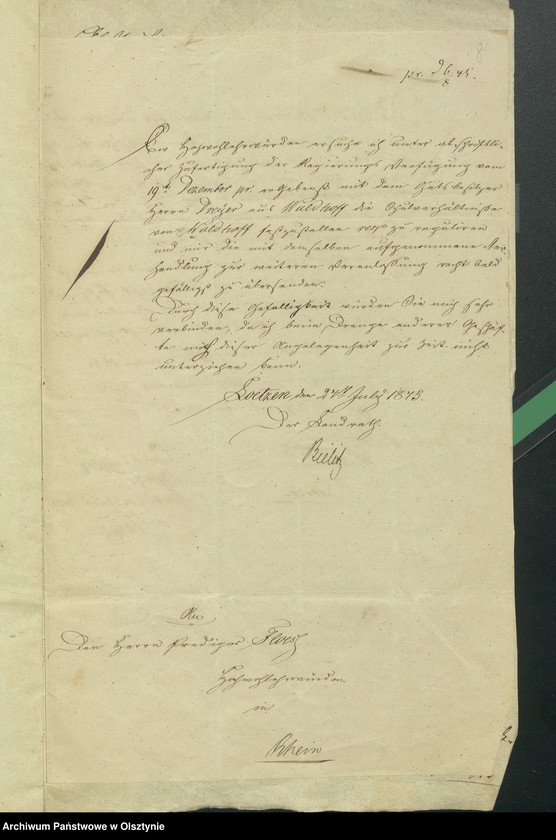 8
pr. 26/8 45.
Ew Hochwohlehrwürden ersuche ich unter abschriftli-
cher Zufertigung der Regierungs Verfügung vom
19t Dezember pr. ergebenst mit dem Gutsbesitzer
Herrn Dreyer aus Waldhoff die Schulverhältnisse
von Waldhoff festzustellen resp zu reguliren
und mir die mit demselben aufgenommene Ver-
handlung zur weiteren Veranlassung recht bald
gefälligst zu übersenden.
Durch diese Gefälligkeit würden Sie mich sehr
verbinden, da ich beim Drange anderer Geschäf-
te mich dieser Angelegenheit zur Zeit nicht
unterziehen kann.
Loetzen den 24t July 1845.
Der Landrath.
An
Den Herrn Prediger
Hochwohlehrwürden
in
Rhein
Archiwum Państwowe w Olsztynie